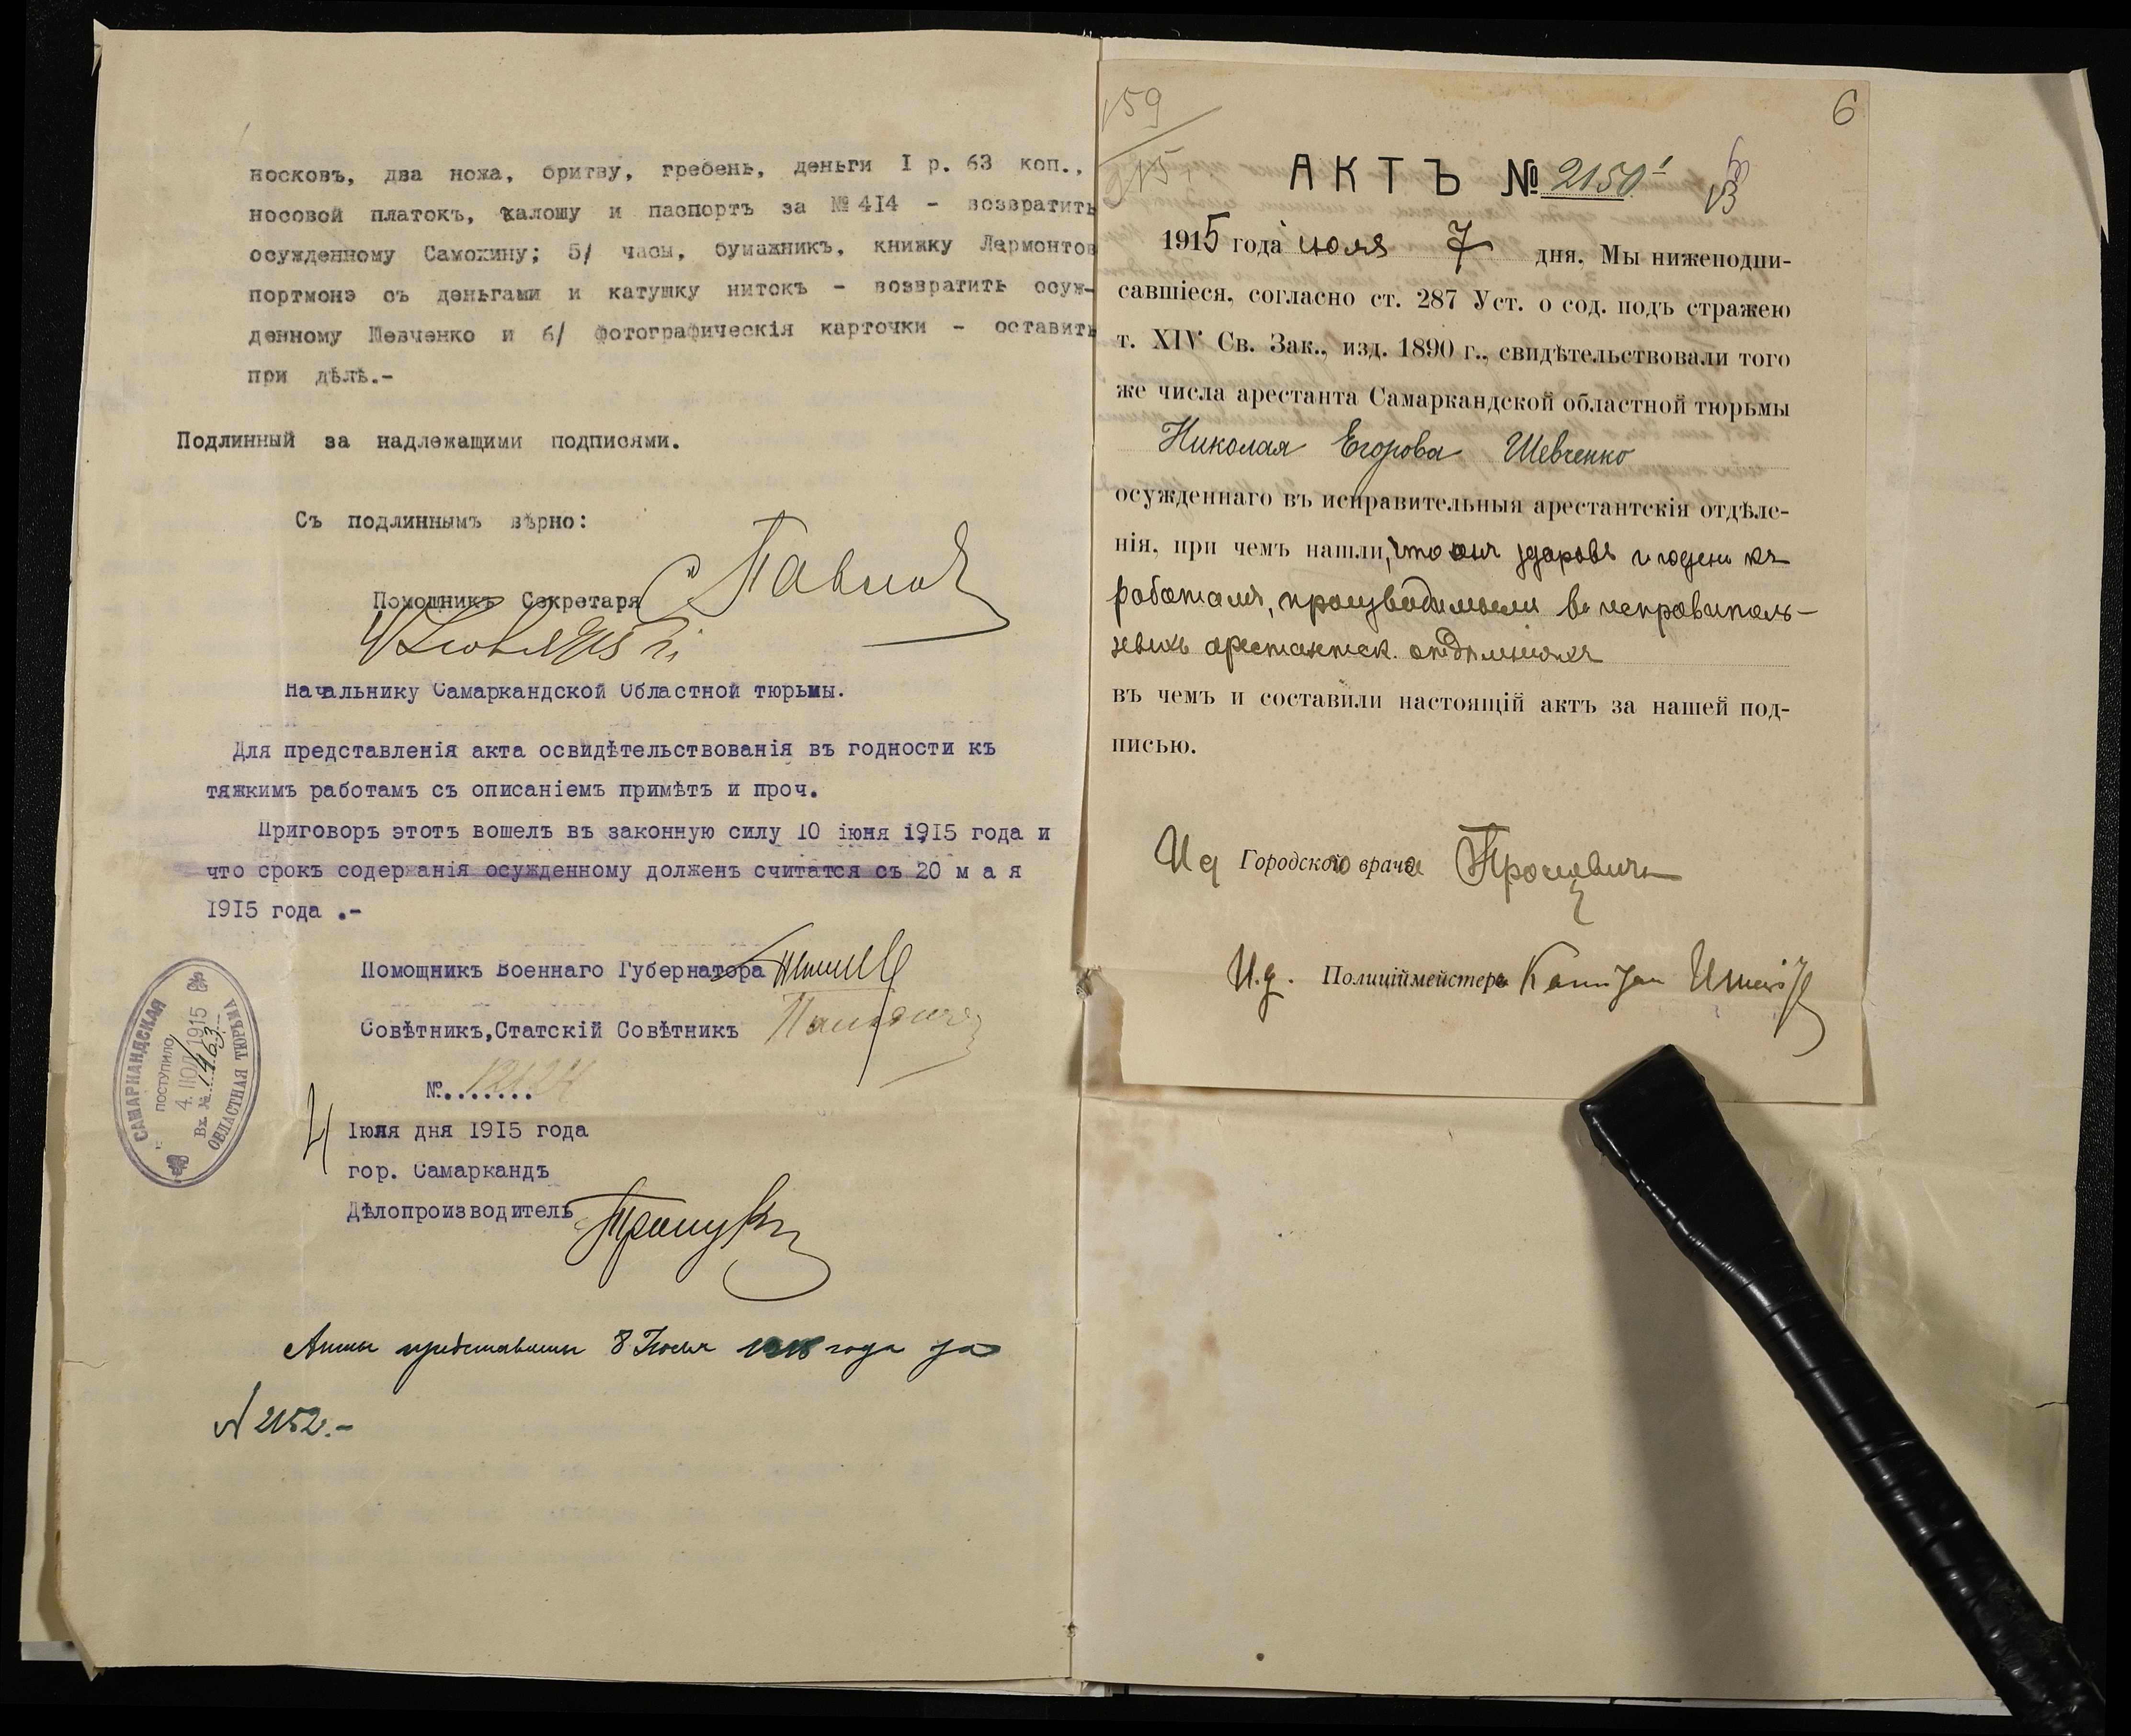 носковъ, два ножа, бритву, гребень, деньги I р. 63 коп.,
носовой платокъ, калошу и паспортъ за №414 - возвратить
осужденному Самохину; 5/ часы, бумажникъ, книжку Лермонтов
портмонэ съ деньгами и катушку нитокъ - возвратить осуж-
денному Шевченко и 6/ фотографическія карточки - оставить
при дѣлѣ.-
Подлинный за надлежащими подписями.
Съ подлиннымъ вѣрно:
Помощникъ Секретаря
Начальнику Самаркандской Областной тюрьмы.
Для представленія акта освидѣтельствованія въ годности къ
тяжкимъ работамъ съ описаніемъ примѣтъ и проч.
Приговоръ этотъ вошелъ въ законную силу 10 іюня 1915 года и
что срокъ содержанія осужденному долженъ считатся съ 20 м а я
1915 года .-
Помощникъ Военнаго Губернатора
Совѣтникъ,Статскій Совѣтникъ
№.......
4 Іюля дня 1915 года
гор. Самаркандъ
Дѣлопроизводитель
САМАРКАНДСКАЯ
ПОСТУПИЛО
4. ІЮЛ 1915
Вх. № 1463
ОБЛАСТНАЯ ТЮРЬМА
Акты представлены 8 Іюля года за
№ 2152.-
159
15
6
АКТЪ № 2150
1915 года июля 7 дня. Мы нижеподпи-
савшіеся, согласно ст. 287 Уст. о сод. подъ стражею
т. XIV Св. Зак., изд. 1890 г., свидѣтельствовали того
же числа арестанта Самаркандской областной тюрьмы
Николая Егорова Шевченко
осужденнаго въ исправительныя арестантскія отдѣле-
нія, при чемъ нашли, что онъ здоровъ и годенъ къ
работамъ, производимымъ въ исправитель-
ныхъ арестантск. отдѣленіяхъ
въ чемъ и составили настоящій актъ за нашей под-
писью.
И д Городского врача
И.д. Полиціймейстера Капитан